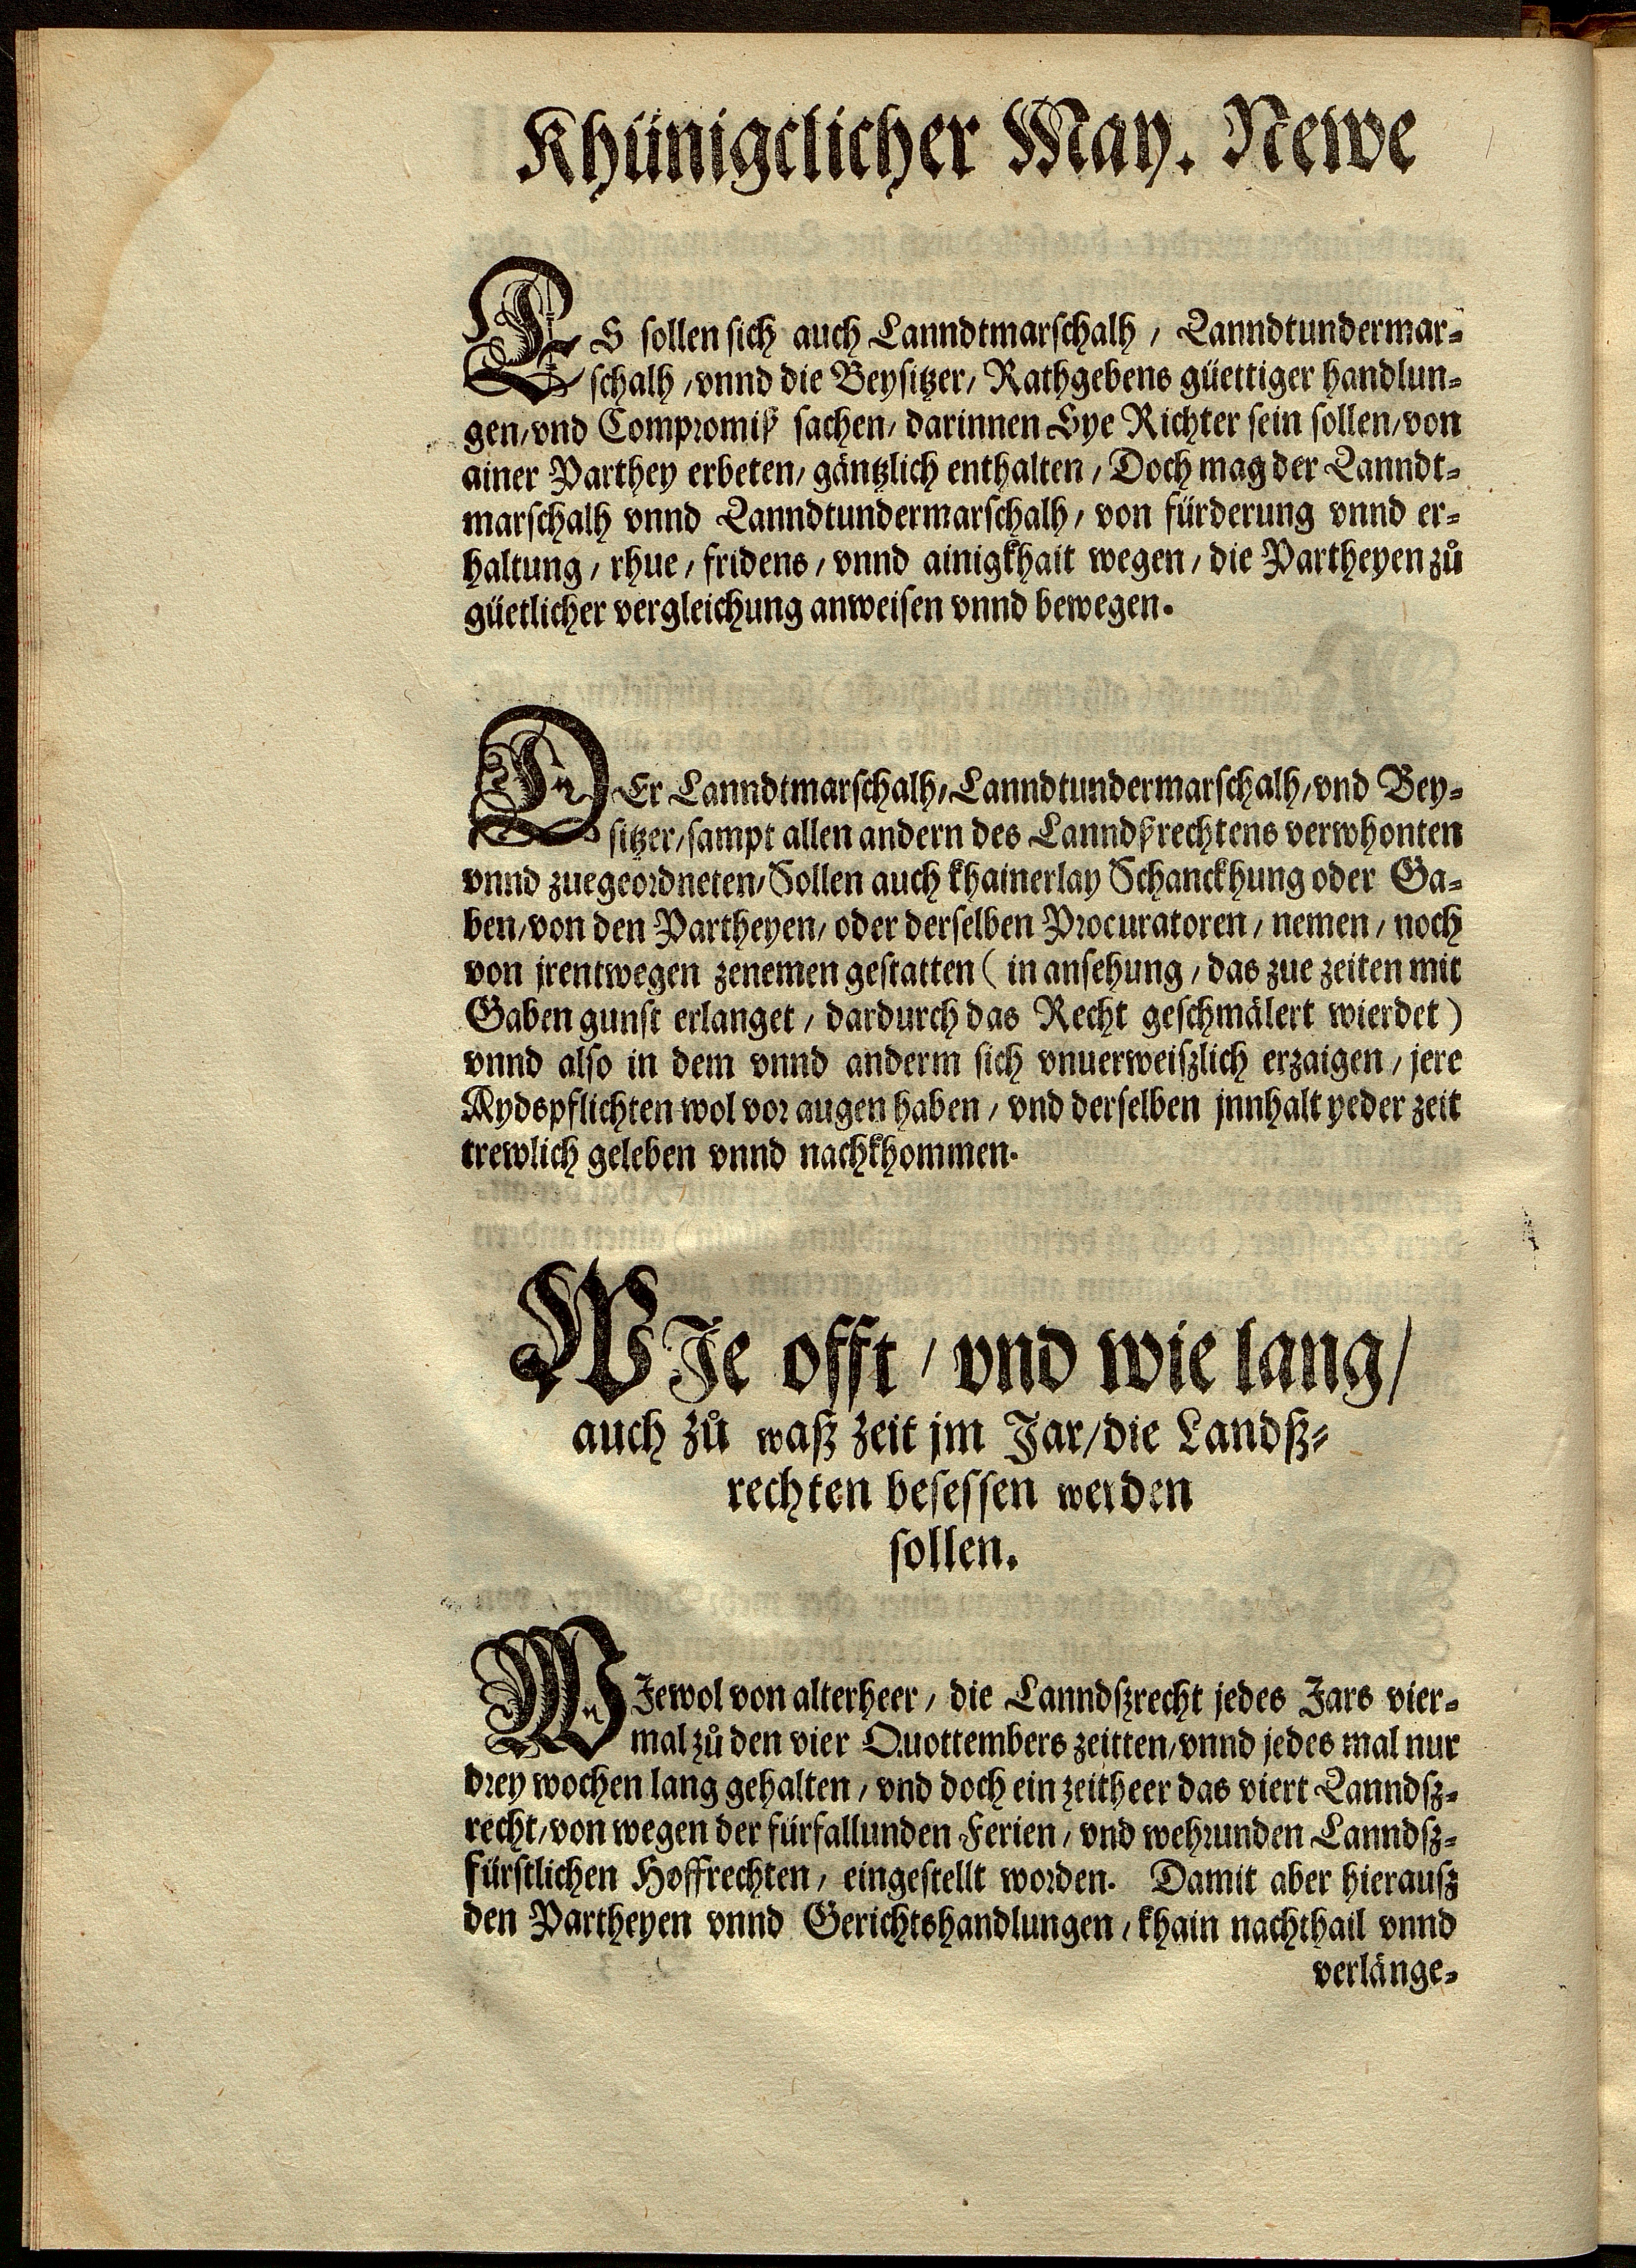 Khünigclicher May. Newe
ES sollen sich auch Lanndtmarschalh / Lanndtundermar-
schalh / vnnd die Beysitzer / Rathgebens güettiger handlun-
gen / vnd Compromiß sachen / darinnen Sye Richter sein sollen / von
ainer Parthey erbeten / gäntzlich enthalten / Doch mag der Lanndt-
marschalh vnnd Lanndtundermarschalh / von fürderung vnnd er-
haltung / rhue / fridens / vnnd ainigkhait wegen / die Partheyen zů
güetlicher vergleichung anweisen vnnd bewegen.
DEr Lanndtmarschalh / Lanndtundermarschalh / vnd Bey-
sitzer / sampt allen andern des Lanndßrechtens verwhonten
vnnd zuegeordneten / Sollen auch khainerlay Schanckhung oder Ga-
ben / von den Partheyen / oder derselben Procuratoren / nemen / noch
von jrentwegen zenemen gestatten ( in ansehung / das zue zeiten mit
Gaben gunst erlanget / dardurch das Recht geschmälert wierdet )
vnnd also in dem vnnd anderm sich vnuerweißlich erzaigen / jere
Aydspflichten wol vor augen haben / vnd derselben jnnhalt yeder zeit
trewlich geleben vnnd nachkhommen.
WJe offt / vnd wie lang /
auch zů waß zeit jm Jar / die Landß-
rechten besessen werden
sollen.
WJewol von alterheer / die Lanndßrecht jedes Jars vier-
mal zů den vier Quottembers zeitten / vnnd jedes mal nur
drey wochen lang gehalten / vnd doch ein zeitheer das viert Lanndß-
recht / von wegen der fürfallunden Ferien / vnd wehrunden Lanndß-
fürstlichen Hoffrechten / eingestellt worden. Damit aber hierauß
den Partheyen vnnd Gerichtshandlungen / khain nachthail vnnd
verlänge-